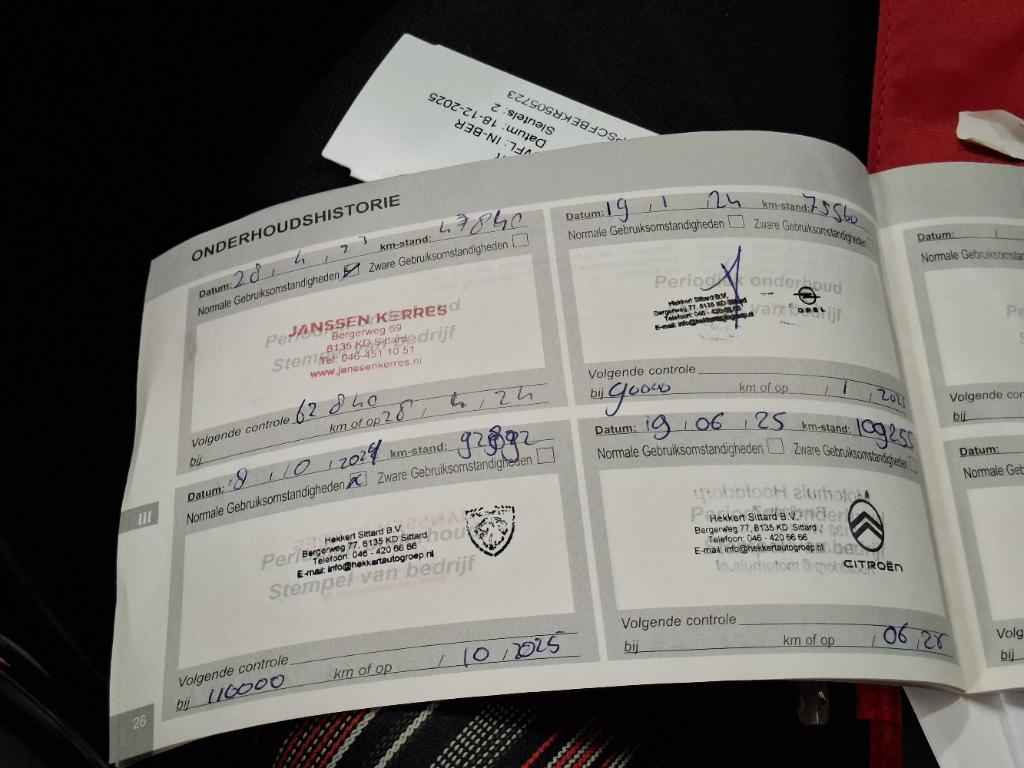 SCFBEKR505723
Sleutels: 2
Datum: 18-12-2025
VFL: IN-BER
ONDERHOUDSHISTORIE
Datum: 28, 4, 23 km-stand: 47840
Normale Gebruiksomstandigheden Zware Gebruiksomstandigheden
Periodiek onderhoud
Stempel van bedrijf
JANSSEN KERRES
Bergerweg 59
6135 KD Sittard
Tel: 046-451 10 51
www.janssenkerres.nl
Volgende controle 62840
bij km of op 28, 4, 24
Datum: 19, 1, 24 km-stand: 75560
Normale Gebruiksomstandigheden Zware Gebruiksomstandigheden
Periodiek onderhoud
van bedrijf
Hekkert Sittard B.V.
Bergerweg 77, 6135 KD Sittard
Telefoon: 046 - 420 66 66
E-mail: info@hekkertautogroep.nl
OPEL
Volgende controle
bij 90000 km of op , 1, 2025
Datum: 10, 2024 km-stand:
Normale Gebruiksomstandigheden Zware Gebruiksomstandigheden
Stempel van bedrijf
Hekkert Sittard B.V.
Bergerweg 77, 6135 KD Sittard
Telefoon: 046 - 420 66 66
E-mail: info@hekkertautogroep.nl
Volgende controle
bij 110000 km of op , 10, 2025
Datum: 19, 06, 25 km-stand: 109255
Normale Gebruiksomstandigheden Zware Gebruiksomstandigheden
Hekkert Sittard B.V.
Bergerweg 77, 6135 KD Sittard
Telefoon: 046 - 420 66 66
E-mail: info@hekkertautogroep.nl
CITROËN
Volgende controle
bij km of op , 06, 26
III
26
Datum:
Normale Gebruiksomstan
Volgende con
bij
Datum:
Normale Geb
Volg
bij